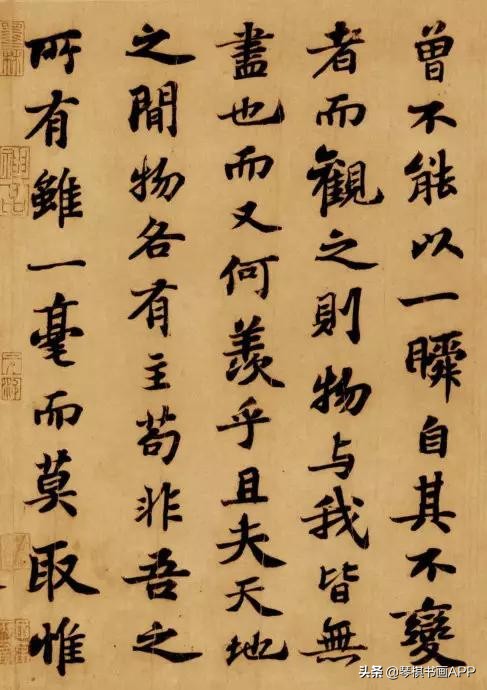 曾不能以一瞬自其不變
者而觀之則物与我皆無
盡也而又何羨乎且夫天地
之間物各有主苟非吾之
所有雖一毫而莫取惟
头条 @琴棋书画APP